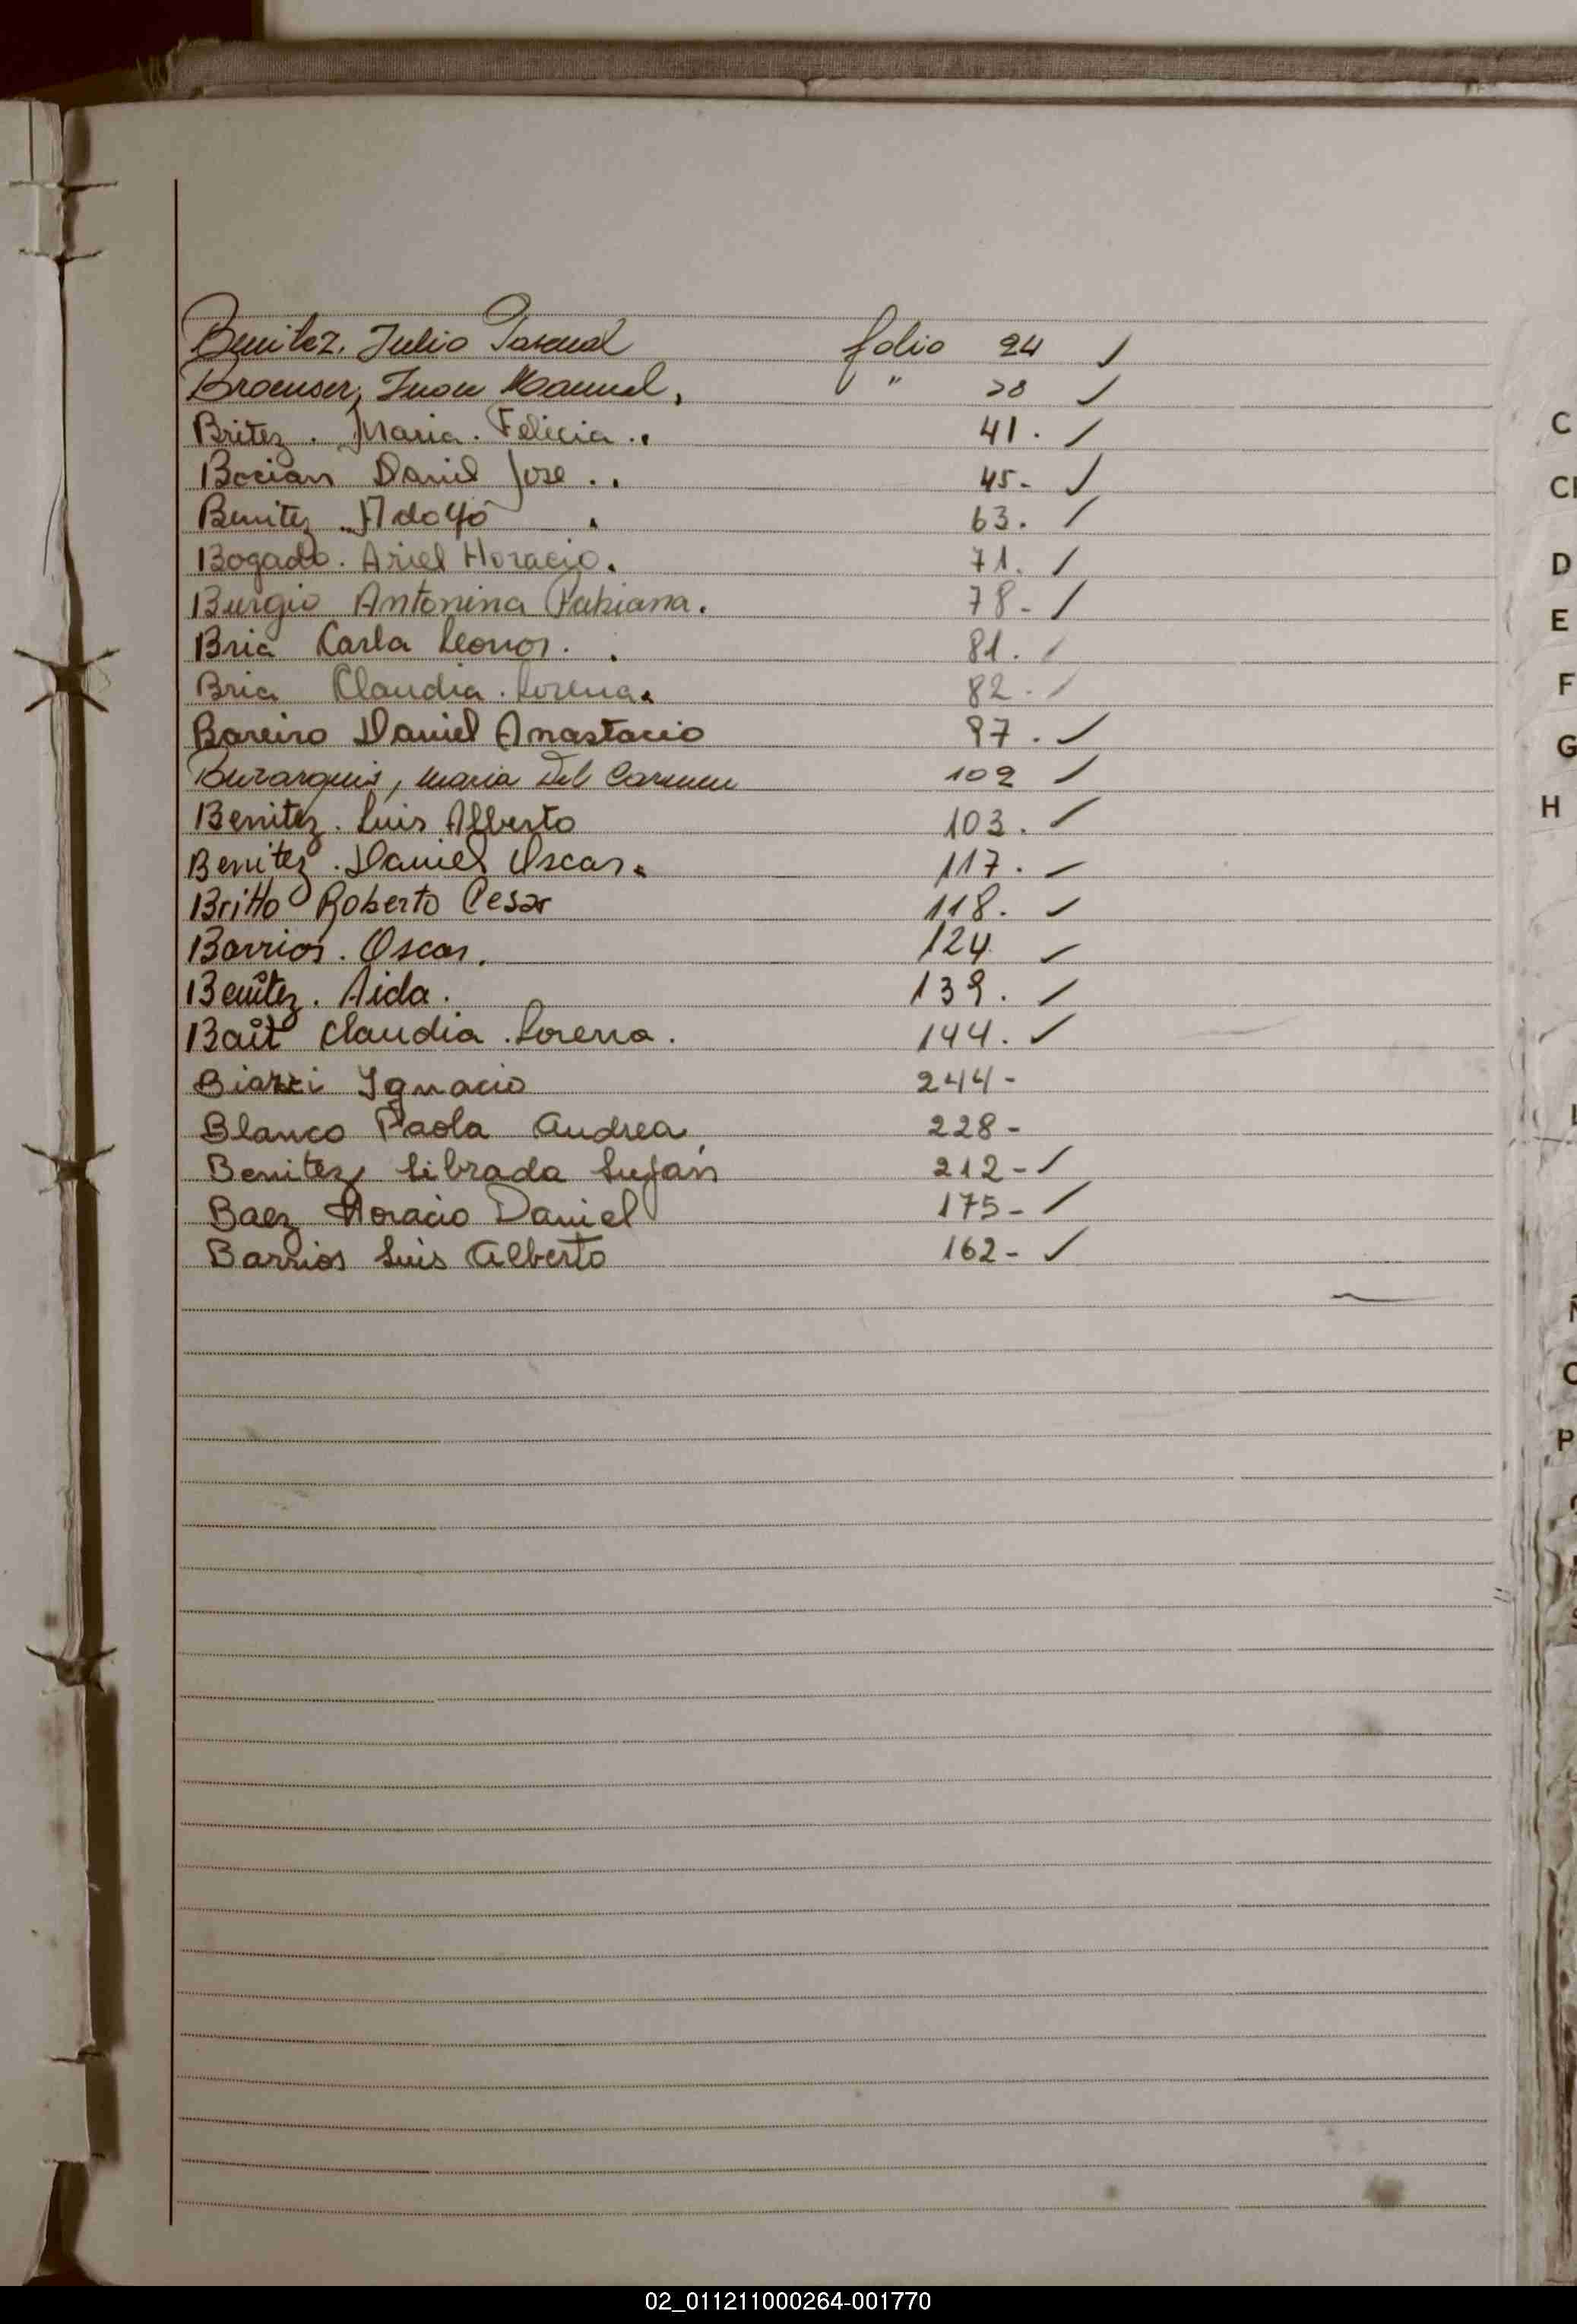 Benitez, Julio Pascual folio 24 ✓
Brouser, Juan Manuel, " 28 ✓
Britez. Maria. Felicia.. 41. ✓
Bocian Daniel Jose.. 45- ✓
Benitez Adolfo . 63. ✓
Bogado. Ariel Horacio. 71. ✓
Burgio Antonina Fabiana. 78- ✓
Bria Carla Leonor. . 81. ✓
Bria Claudia. Lorena. 82. ✓
Bareiro Daniel Anastacio 97. ✓
Maria Del Carmen 102 ✓
Benitez. Luis Alberto 103. ✓
Benitez. Daniel Oscar. 117. ✓
Britto Roberto Cesar 118. ✓
Barrios. Oscar. 124 ✓
Benitez. Aida. 139. ✓
Bait Claudia. Lorena. 144. ✓
Biazzi Ignacio 244-
Blanco Paola Andrea 228-
Benitez Librada Luján 212- ✓
Baez Horacio Daniel 175- ✓
Barrios Luis Alberto 162- ✓
C
D
E
F
G
H
P
02_011211000264-001770